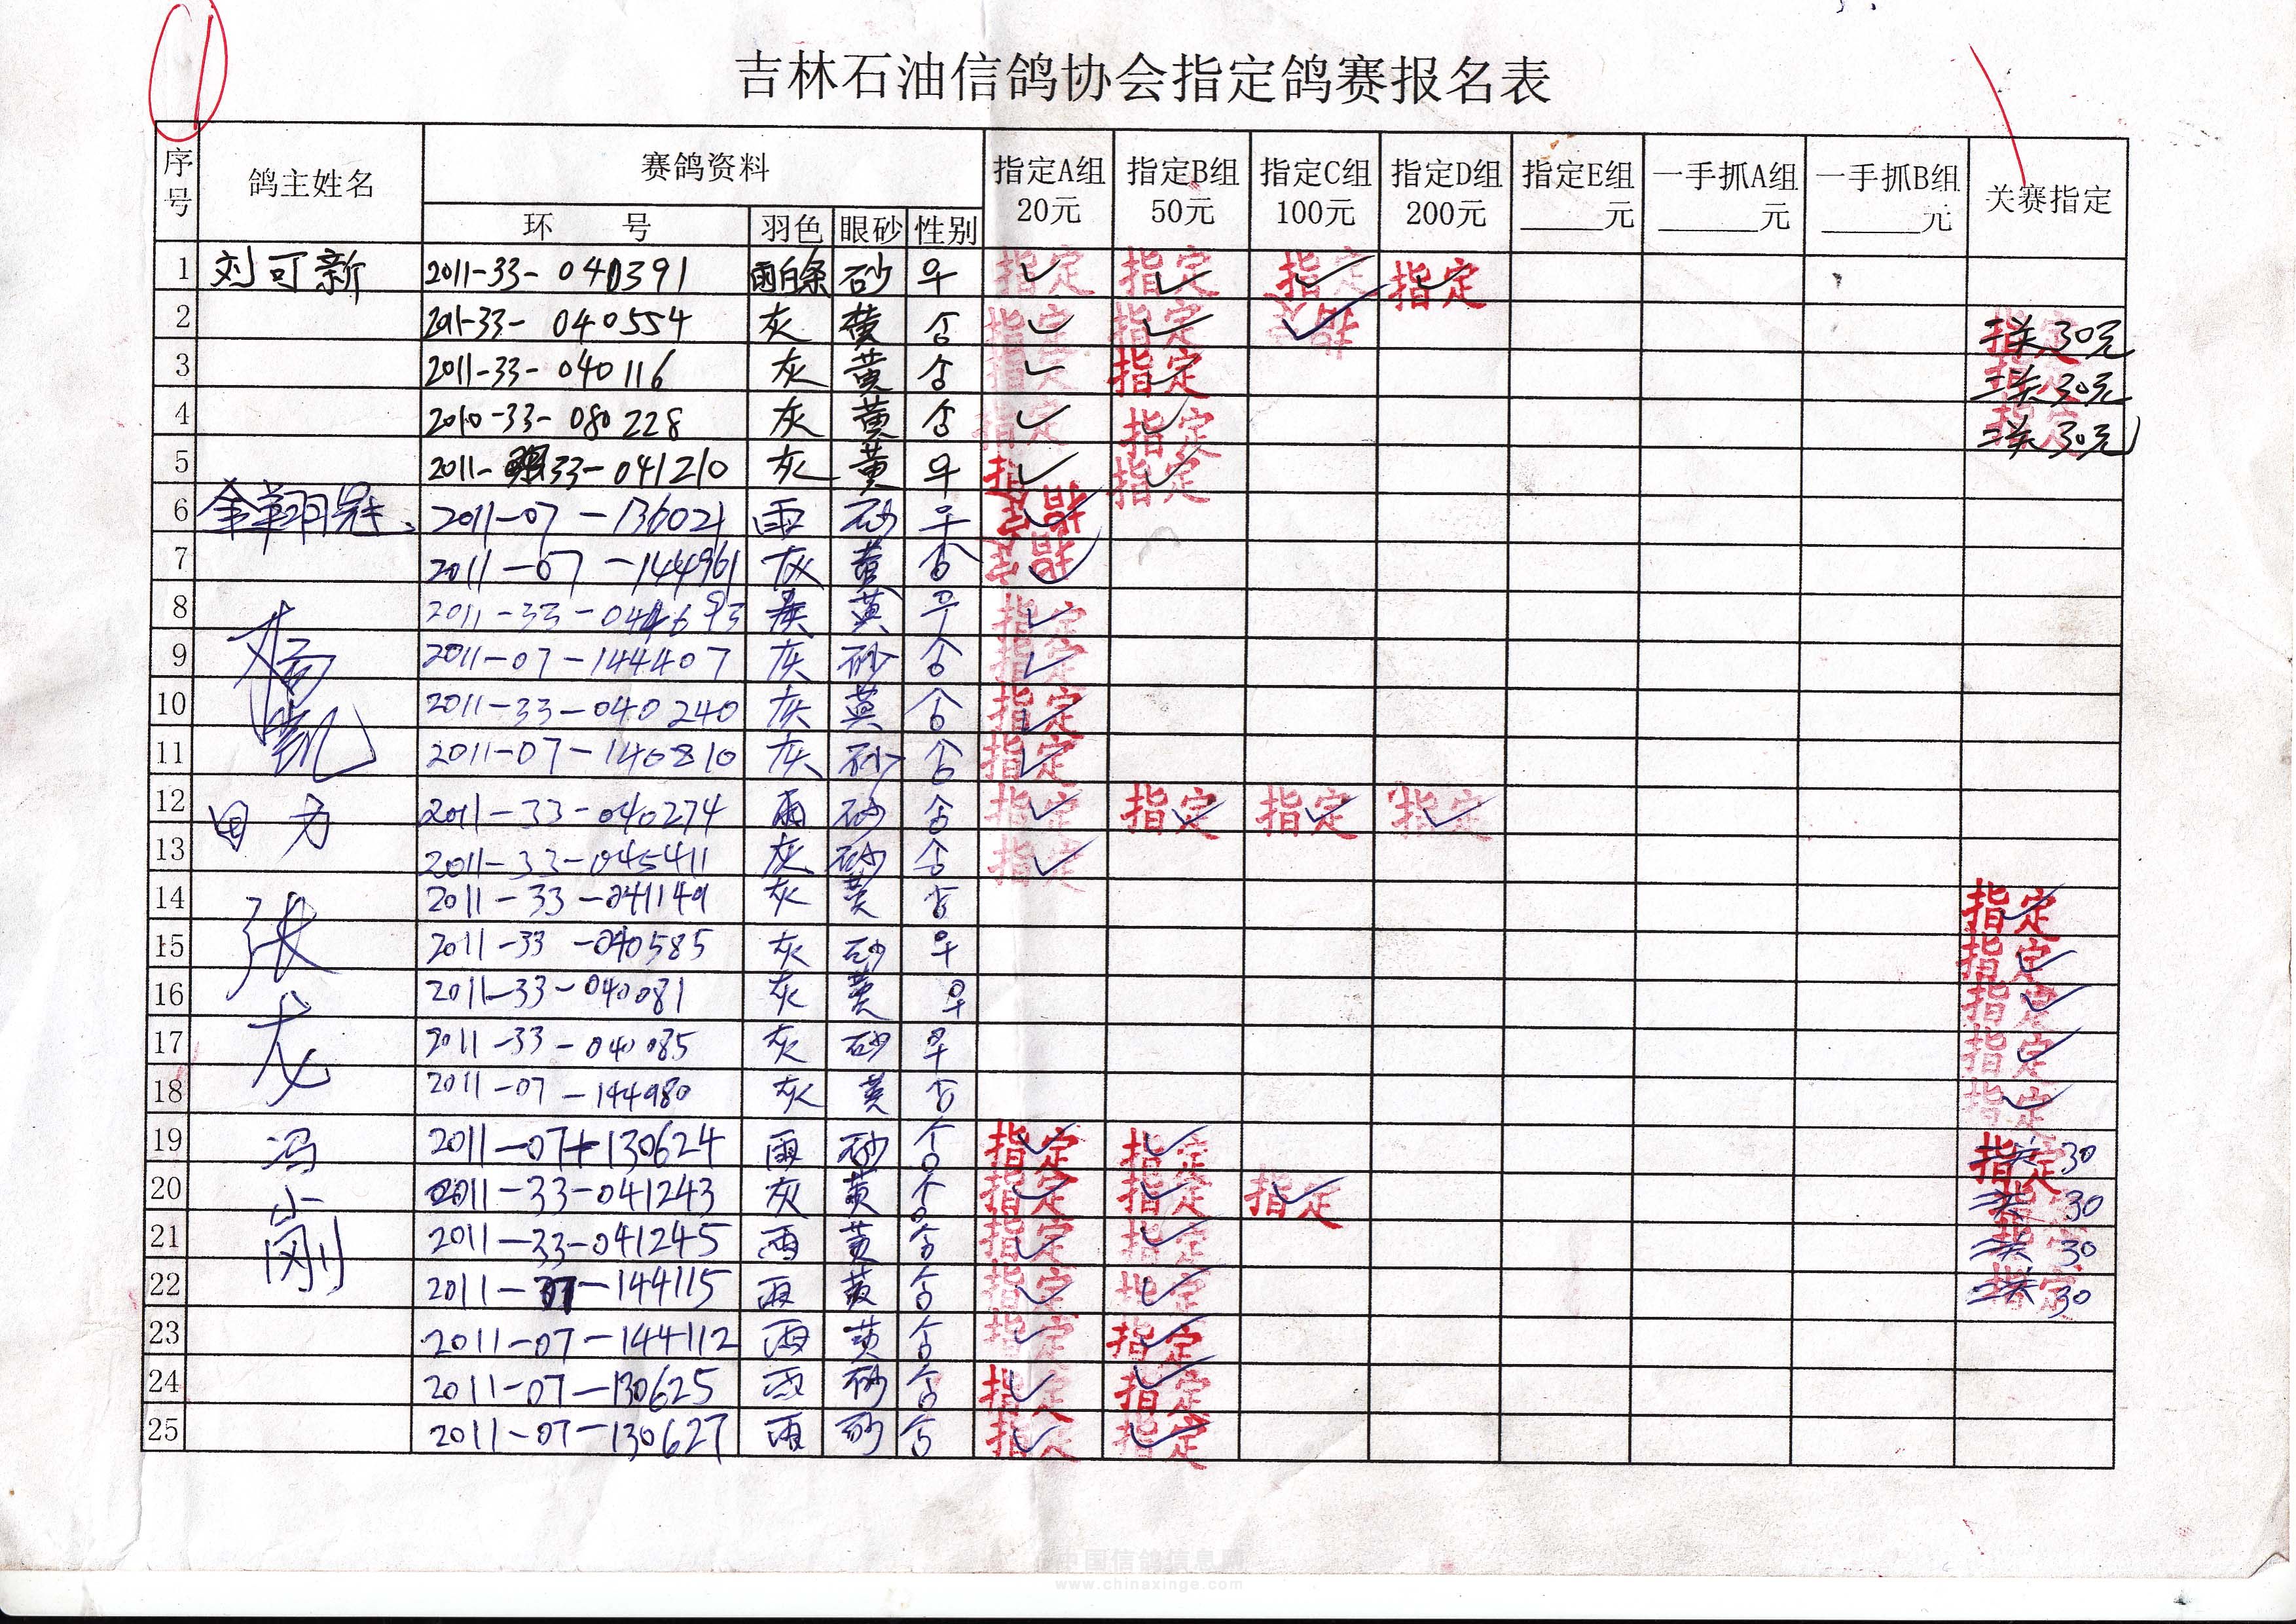 吉林石油信鸽协会指定鸽赛报名表
序号 鸽主姓名 赛鸽资料 指定A组 20元 指定B组 50元 指定C组 100元 指定D组 200元 指定E组 ____元 一手抓A组 ____元 一手抓B组 ____元 关赛指定
环 号 羽色 眼砂 性别
1 刘可新 2011-33-040391 雨白条 砂 ♀ 指定 ✓ 指定 ✓ 指定 ✓ 指定 ✓
2 2011-33-040554 灰 黄 指定 ✓ 指定 ✓ 指定 ✓ 指定 二关30元
3 2011-33-040116 灰 黄 指定 ✓ 指定 ✓ 指定 二关30元
4 2010-33-080228 灰 黄 指定 ✓ 指定 ✓ 指定 二关30元
5 2011-33-041210 灰 黄 ♀ 指 ✓ 指定 ✓
6 2011-07-136021 雨 砂 ♀ 指定 ✓
7 2011-07-144961 灰 黄 指定 ✓
8 杨凯 2011-33- 黄 ♀ 指定 ✓
9 2011-07-144407 灰 砂 指定 ✓
10 2011-33-040240 灰 黄 指定 ✓
11 2011-07-140810 灰 砂 指定 ✓
12 田力 2011-33-040274 雨 砂 指定 ✓ 指定 ✓ 指定 ✓ 指定 ✓
13 2011-33-045411 灰 砂 指定 ✓
14 张龙 2011-33-041149 灰 黄 指定 ✓
15 2011-33-040585 灰 砂 ♀ 指定 ✓
16 2011-33-040081 灰 黄 ♀ 指定 ✓
17 2011-33-040085 灰 砂 ♀ 指定 ✓
18 2011-07-144980 灰 黄 指定 ✓
19 冯小刚 2011-07-130624 雨 砂 指定 ✓ 指定 ✓ 指定 30
20 2011-33-041243 灰 黄 指定 ✓ 指定 ✓ 指定 ✓ 指定 二关 30
21 2011-33-041245 雨 黄 指定 ✓ 指定 ✓ 指定 二关 30
22 2011-07-144115 雨 黄 指定 ✓ 指定 ✓ 指定 二关 30
23 2011-07-144112 雨 黄 指定 ✓ 指定 ✓
24 2011-07-130625 雨 砂 指定 ✓ 指定 ✓
25 2011-07-130627 雨 砂 指定 ✓ 指定 ✓
中国信鸽信息网
www.chinaxinge.com